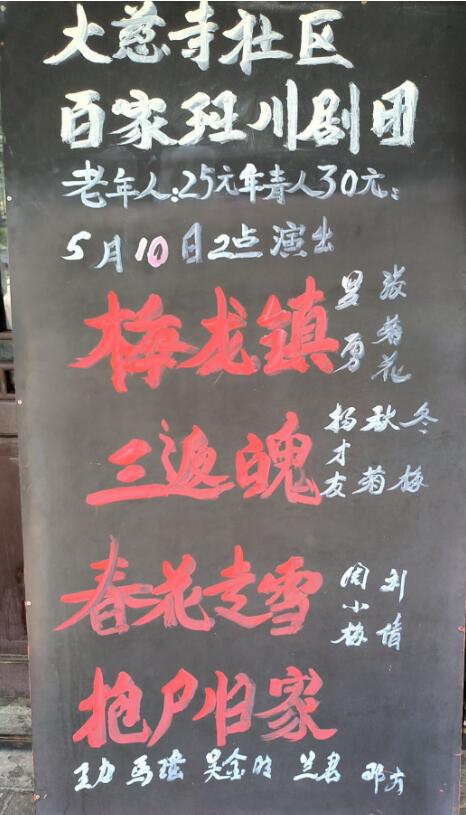 大慈寺社区
百家班川剧团
老年人:25元年青人30元:
5月10日2点演出
梅龙镇
昊勇 张菊花
三返魄
杨才友 秋菊 冬梅
春花走雪
周小梅 刘倩
抢尸归家
王力 马 吴金 兰君 邓方